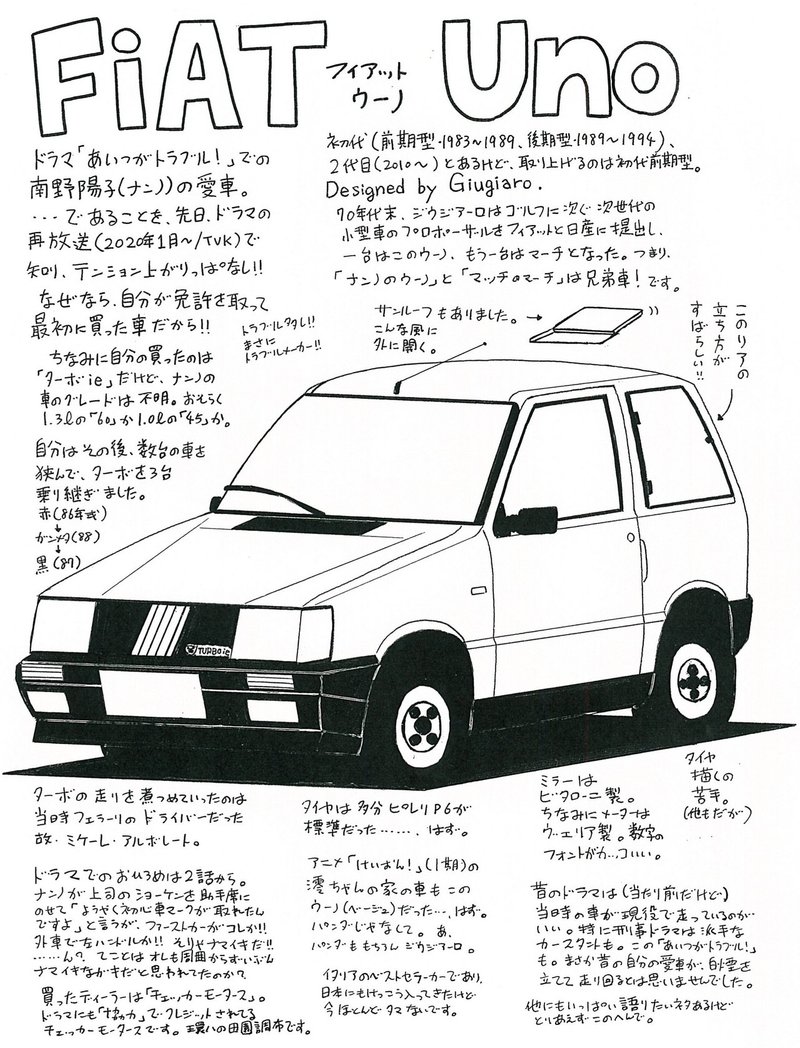 FiAT Uno
フィアット
ウーノ
初代(前期型・1983〜1989、後期型・1989〜1994)、
2代目(2010〜)とあるけど、取り上げるのは初代前期型。
Designed by Giugiaro.
70年代末、ジウジアーロはゴルフに次ぐ次世代の
小型車のプロポーザルをフィアットと日産に提出し、
一台はこのウーノ、もう一台はマーチとなった。つまり、
「ナンノのウーノ」と「マッチのマーチ」は兄弟車!です。
ドラマ「あいつがトラブル!」での
南野陽子(ナンノ)の愛車。
‥‥であることを、先日、ドラマの
再放送(2020年1月〜/TVK)で
知り、テンション上がりっぱなし!!
なぜなら、自分が免許を取って
最初に買った車だから!!
トラブルタレ!!
まさに
トラブルメーカー!!
ちなみに自分の買ったのは
「ターボie」だけど、ナンノの
車のグレードは不明。おそらく
1.3lの「60」か1.0lの「45」か。
自分はその後、数台の車を
挟んで、ターボを3台
乗り継ぎました。
赤(86年式)
↓
ガンメタ(88)
↓
黒(87)
サンルーフもありました。→
こんな風に
外に開く。
このリアの
立ち方が
すばらしい!!
TURBO ie
ターボの走りを煮つめていったのは
当時フェラーリのドライバーだった
故・ミケーレ・アルボレート。
ドラマでのお披ろめは2話から。
ナンノが上司のショーケンを助手席に
のせて「ようやく初心車マークが取れたん
ですよ」と言うが、ファーストカーがコレか!!
外車で左ハンドルか!! そりゃナマイキだ!!
‥‥ん? てことはオレも周囲からずいぶん
ナマイキなガキだと思われてたのか?
買ったディーラーは「チェッカーモータース」。
ドラマにも「協力」でクレジットされてる
チェッカーモータースです。環八の田園調布です。
タイヤは多分ピレリP6が
標準だった‥‥‥、はず。
アニメ「けいおん!」(1期)の
澪ちゃんの家の車もこの
ウーノ(ベージュ)だった‥‥、はず。
パンダじゃなくて。あ、
パンダももちろんジウジアーロ。
イタリアのベストセラーカーであり、
日本にもけっこう入ってきたけど
今ほとんどタマないです。
ミラーは
ビタローニ製。
ちなみにメーターは
ヴェリア製。数字の
フォントがカッコいい。
タイヤ
描くの
苦手。
(他もだが)
昔のドラマは(当たり前だけど)
当時の車が現役で走っているのが
いい。特に刑事ドラマは派手な
カースタントも。この「あいつがトラブル!」
も。まさか昔の自分の愛車が、白煙を
立てて走り回るとは思いませんでした。
他にもいっぱい語りたいネタあるけど
とりあえずこのへんで。